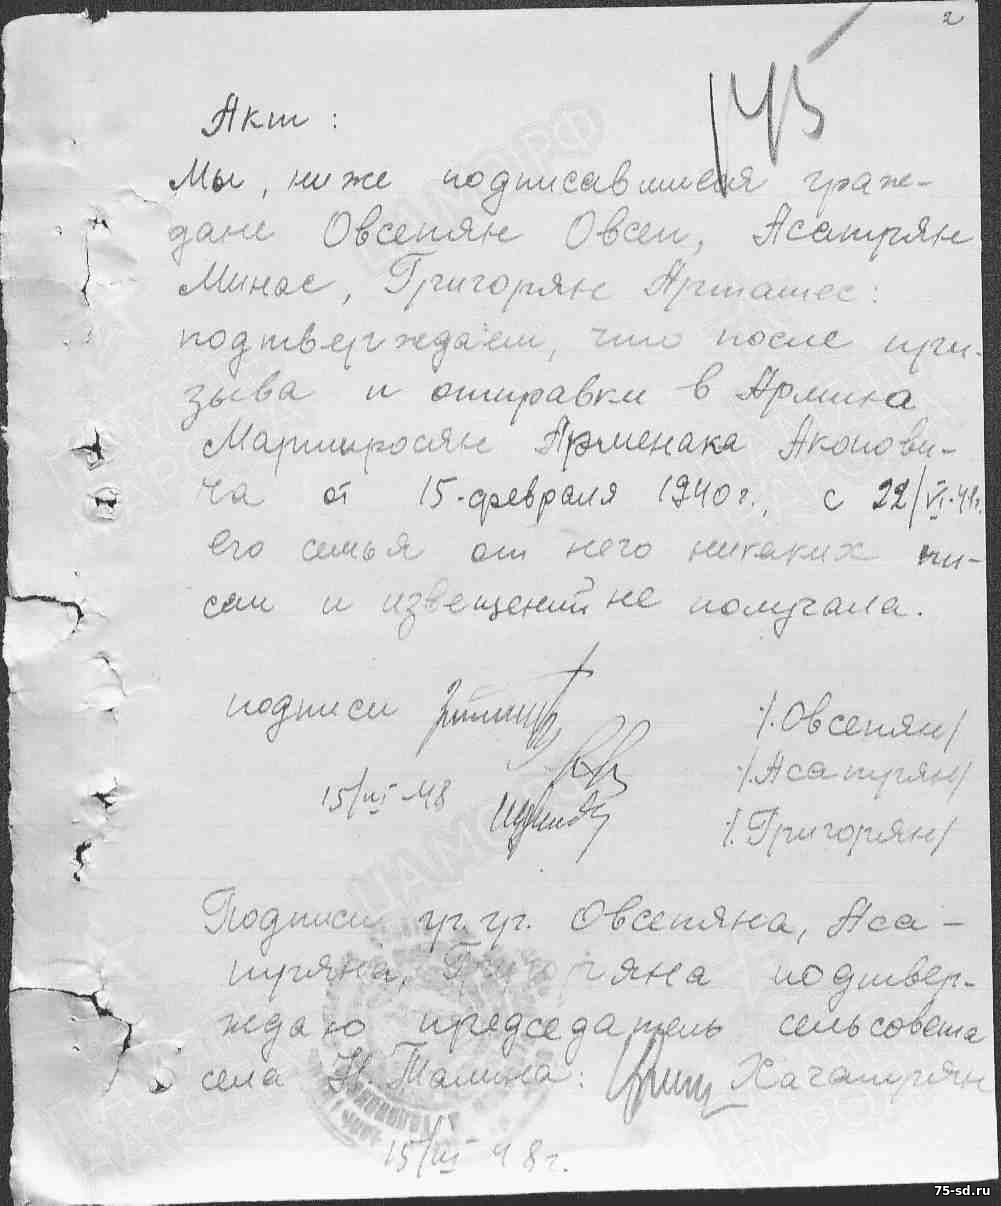 2
145
Акт:
Мы, ниже подписавшиеся граж-
дане Овсепян Овсеп, Асатрян
Минас, Григорян Арташес:
подтверждаем, что после при-
зыва и отправки в Армина
Мартиросян Арменака Акопови-
ча от 15-февраля 1940 г., с 22/VI-41г.
его семья от него никаких пи-
сем и извещений не получала.
подписи /.Овсепян/
/.Асатрян/
15/III-48
/.Григорян/
Подписи гр.гр. Овсепяна, Аса-
тряна, Григоряна подтвер-
ждаю председатель сельсовета
села Н. Талина: Хачатрян
15/III 48г.
75-sd.ru